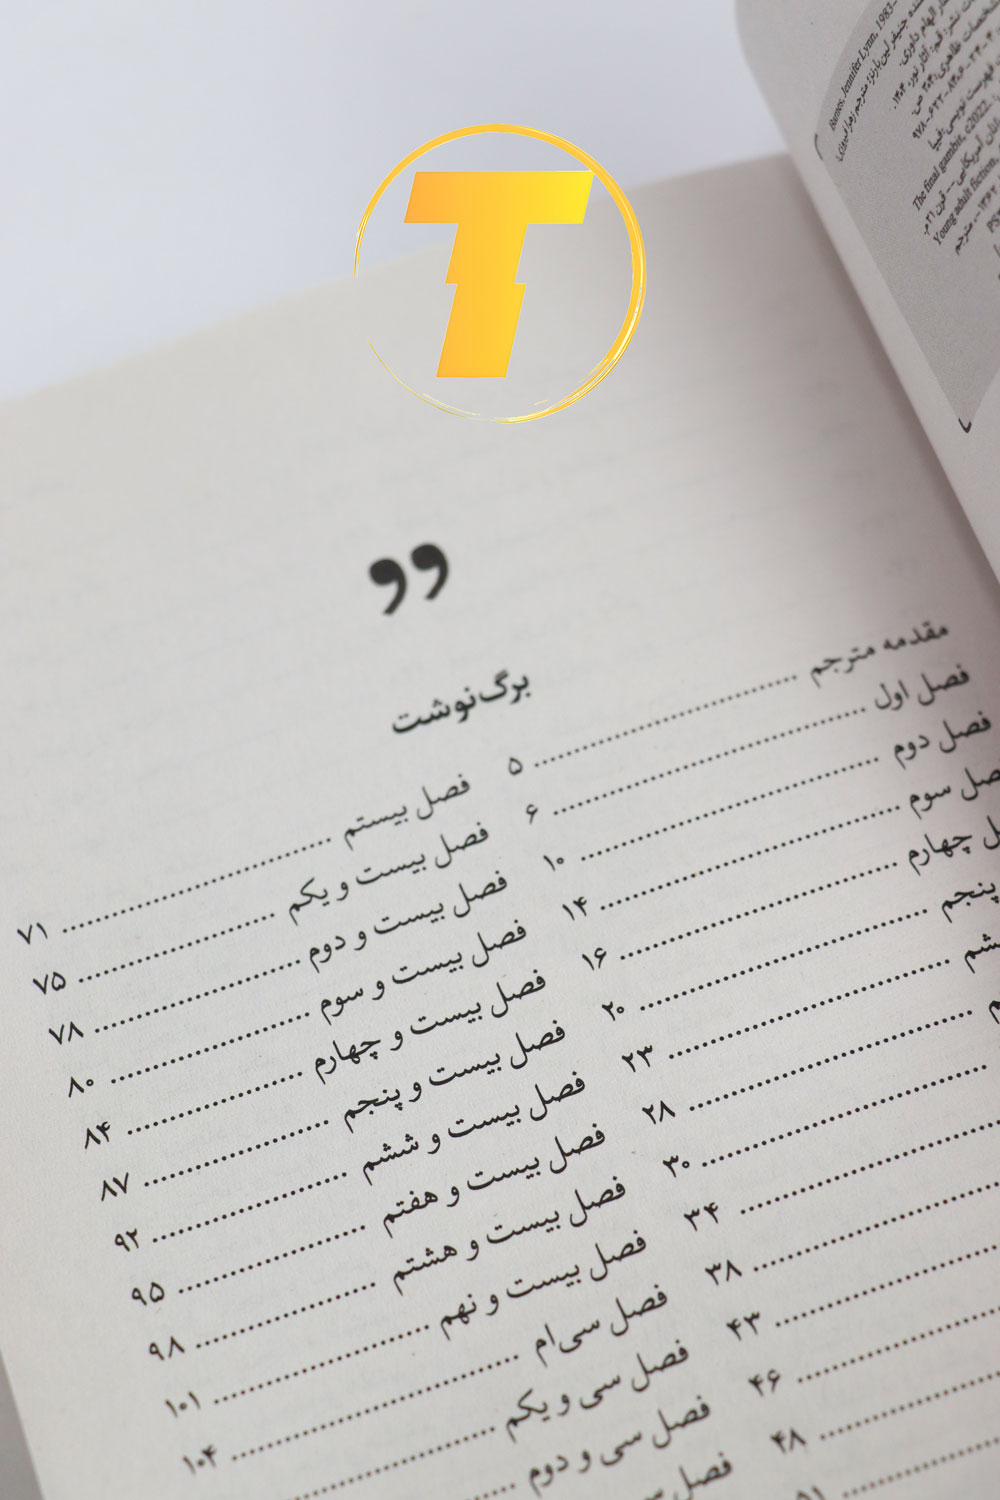 Barnes, Jennifer Lynn, 1983-
The final gambit, c2022.
Young adult fiction,
T
برگ‌نوشت
مقدمه مترجم ........ ۵
فصل اول ........ ۶
فصل دوم ........ ۱۰
سوم ........ ۱۴
چهارم ........ ۱۶
پنجم ........ ۲۰
........ ۲۳
........ ۲۸
........ ۳۰
........ ۳۴
........ ۳۸
........ ۴۳
........ ۴۶
........ ۴۸
........ ۵۱
فصل بیستم ........ ۷۱
فصل بیست و یکم ........ ۷۵
فصل بیست و دوم ........ ۷۸
فصل بیست و سوم ........ ۸۰
فصل بیست و چهارم ........ ۸۴
فصل بیست و پنجم ........ ۸۷
فصل بیست و ششم ........ ۹۲
فصل بیست و هفتم ........ ۹۵
فصل بیست و هشتم ........ ۹۸
فصل بیست و نهم ........ ۱۰۱
فصل سی‌ام ........ ۱۰۴
فصل سی و یکم ........
فصل سی و دوم ........
فصل سی